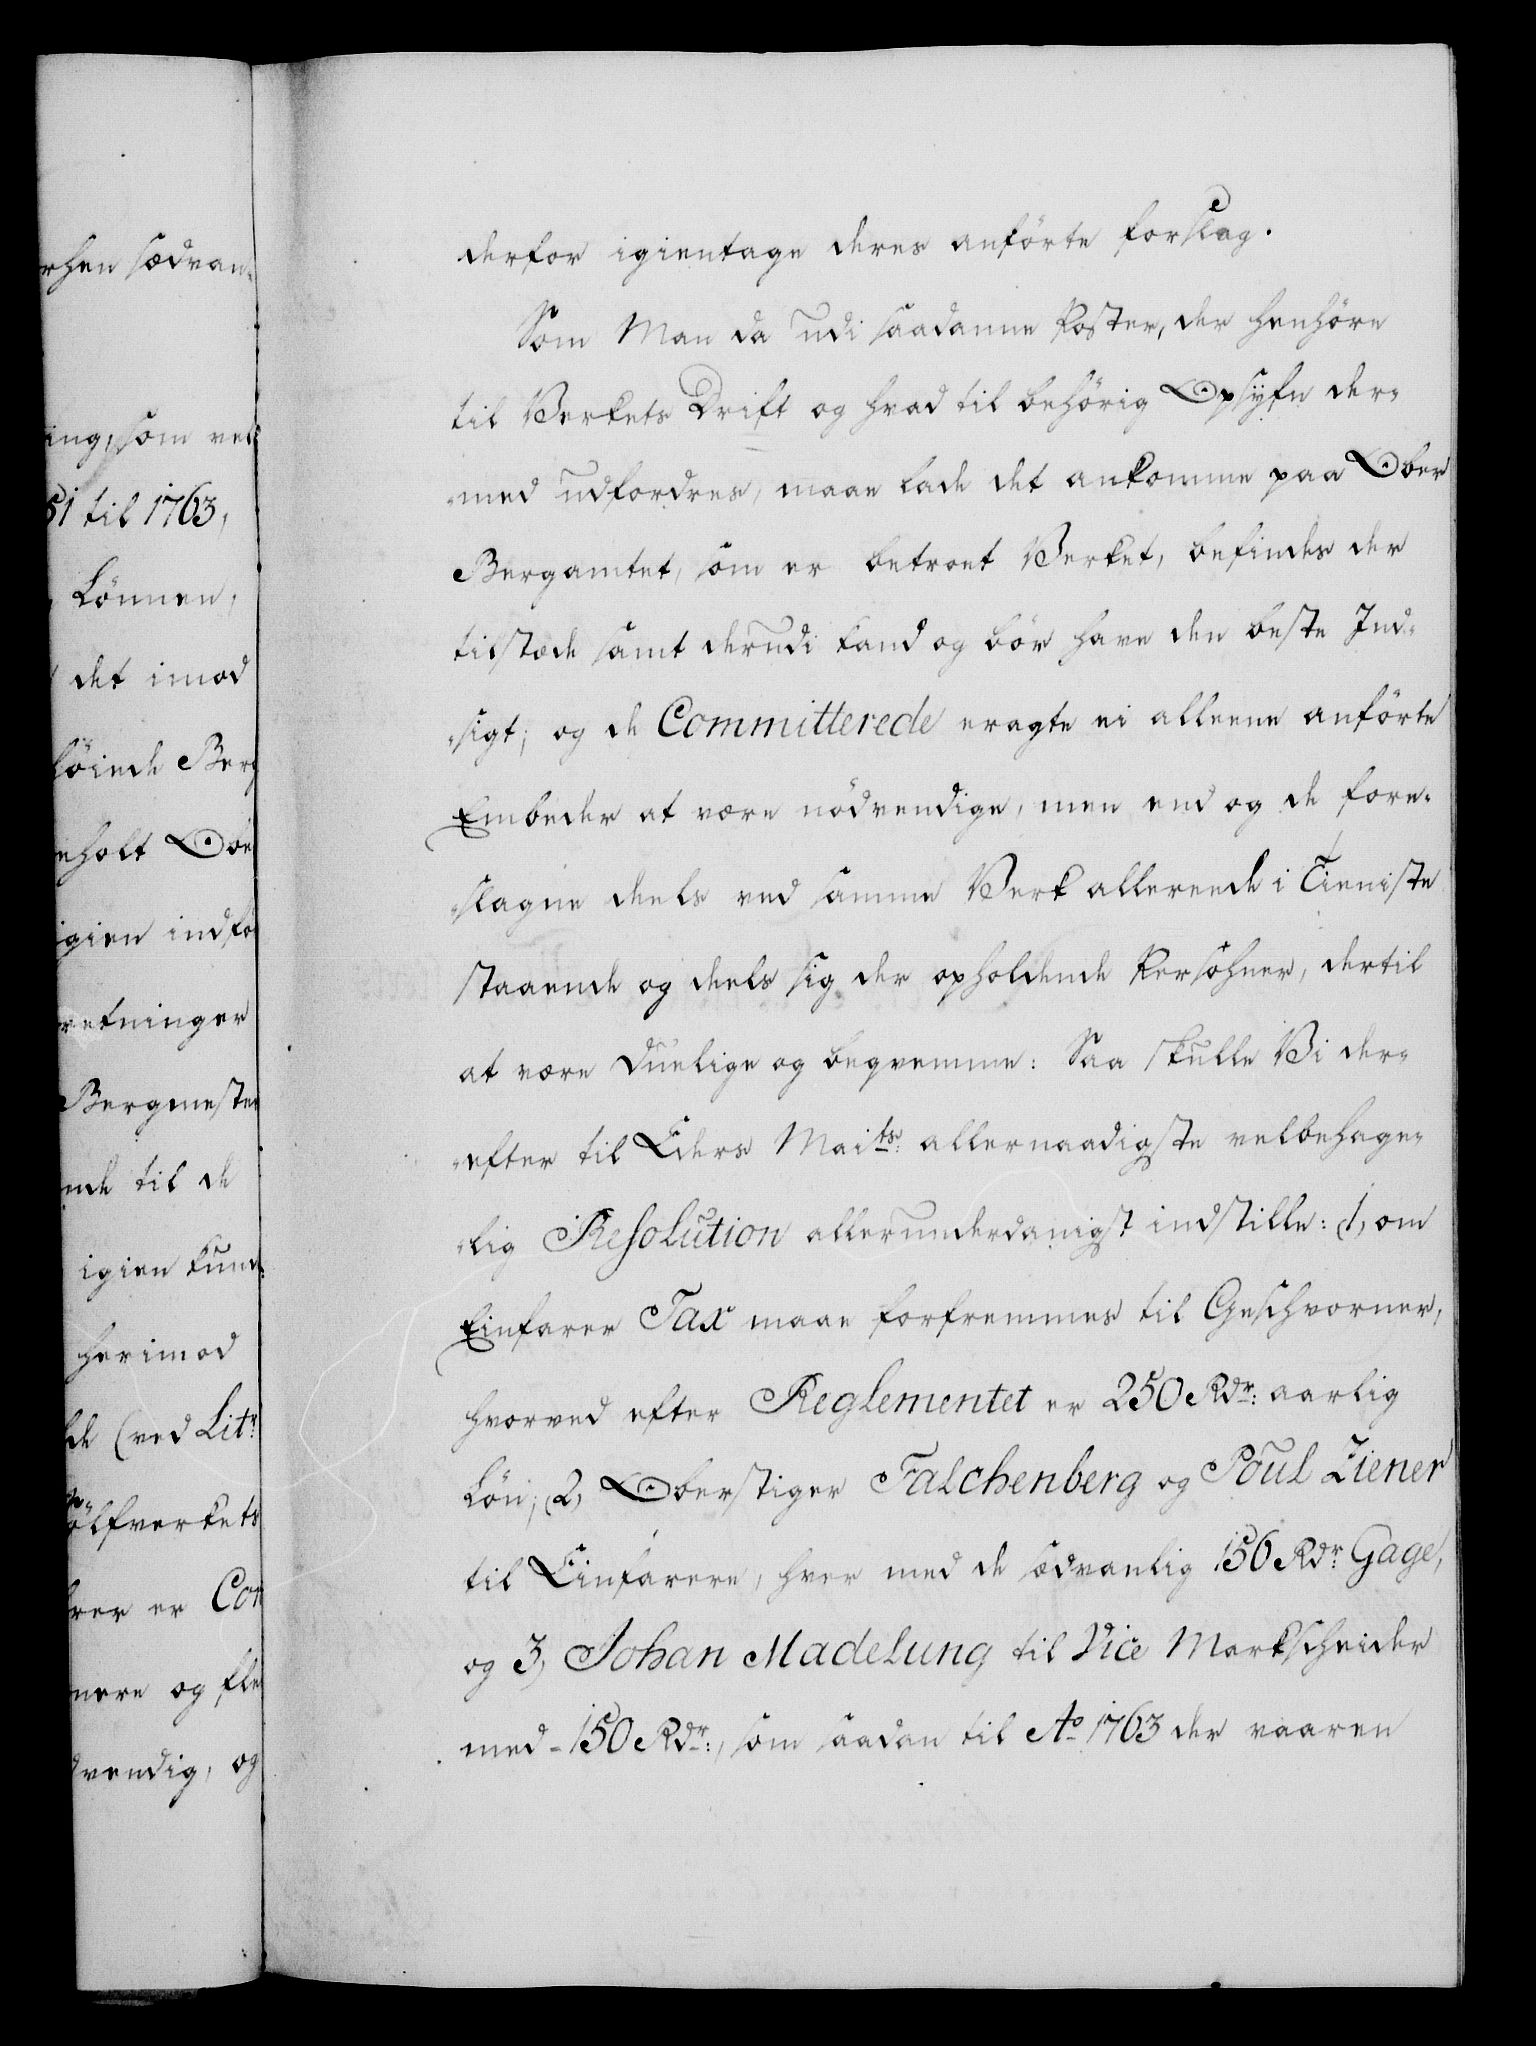 rhen sædvan-
ing, som ved
51 til 1763,
Lönnen,
det imod
höiede Berg
eholt Obe
igien indfö
retninger
Bergmester
nde til de
igien kund-
herimod
de (ved Litr
Sölfverkets
rer er Com
nere og fle
dvendig, og
derfor igientage deres anförte forslag.
Som Man da udi saadanne Poster, der henhöre
til Verkets Drift og hvad til behörig Opsyn der-
-med udfordres, maae lade det ankomme paa Ober
Bergamtet, som er betroet Verket, befindes der
tilstæde samt derudi kand og bör have den beste Ind-
-sigt; og de Committerede eragte ei alleene anförte
Embeder at være nödvendige, men end og de fore-
-slagne deels ved samme Verk allereede i Tieniste
staaende og deels sig der opholdende Persohner, dertil
at være duelige og beqvemme: Saa skulle Vi der-
-efter til Eders Maits: allernaadigste velbehage-
-lig Resolution allerunderdanigst indstille: (1, om
Einfarer Tax maae forfremmes til Geschvorner,
hvorved efter Reglementet er 250 Rdr: aarlig
Lön; (2, Oberstiger Falchenberg og Poul Ziener
til Einfarere, hver med de sædvanlig 156 Rdr Gage,
og 3, Johan Madelung til Vice Markscheider
med - 150 Rdr:, som saadan til Ao 1763 der vaaren